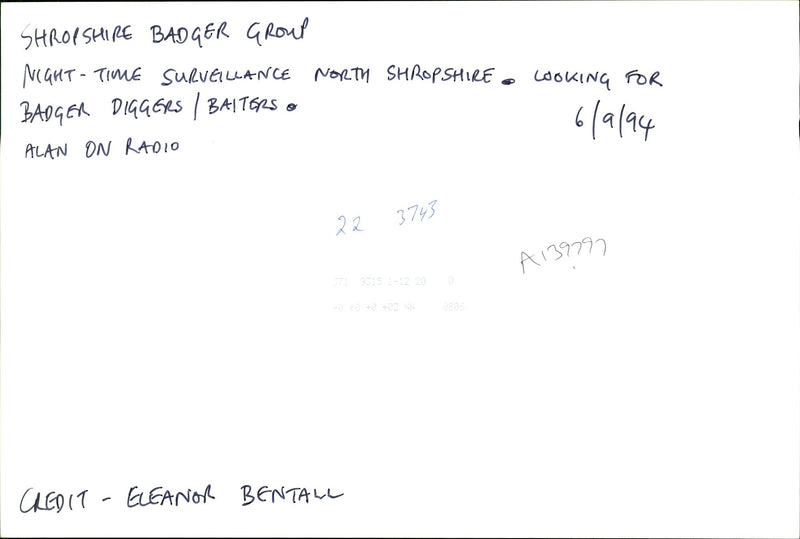 SHROPSHIRE BADGER GROUP
NIGHT-TIME SURVEILLANCE NORTH SHROPSHIRE. LOOKING FOR
BADGER DIGGERS/BAITERS.
6/9/94
ALAN ON RADIO
22 3743
A139797
CREDIT - ELEANOR BENTALL